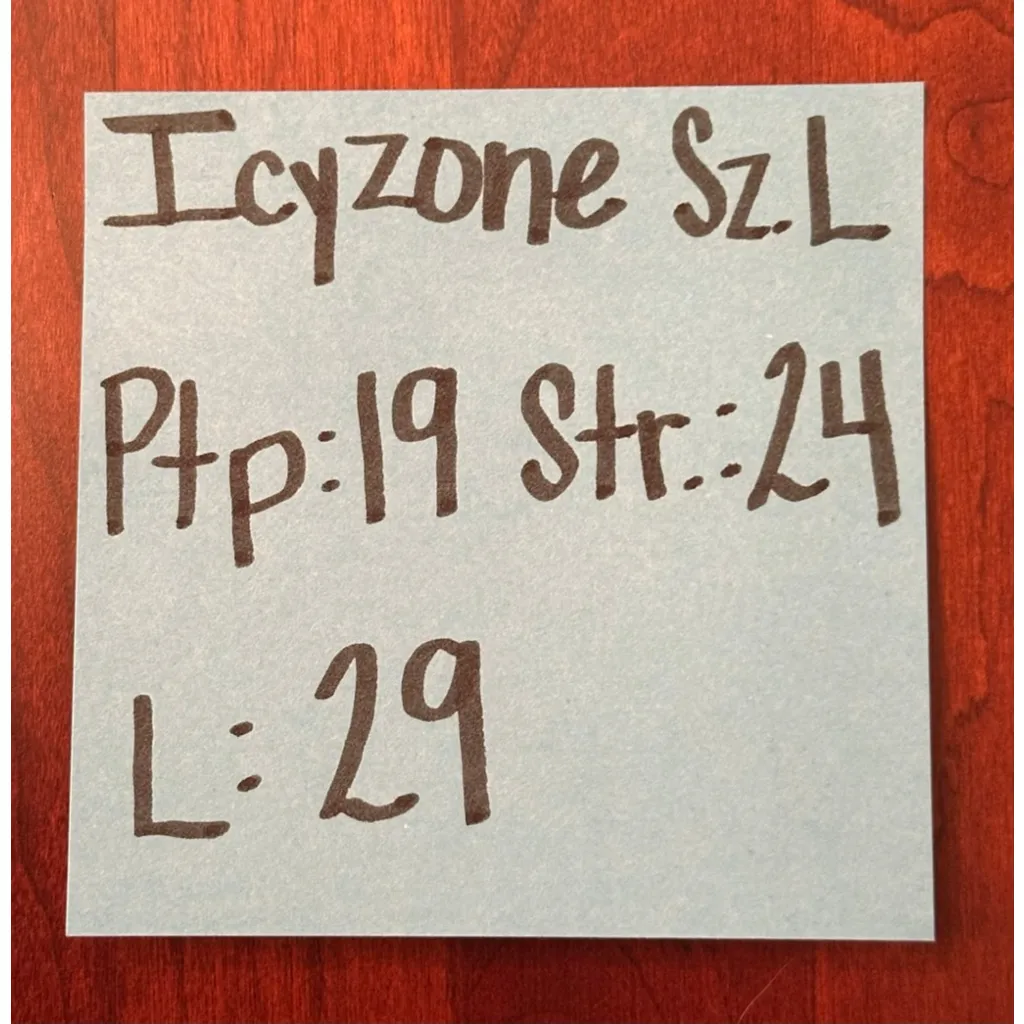 Icyzone Sz. L
Ptp: 19 Str.: 24
L: 29